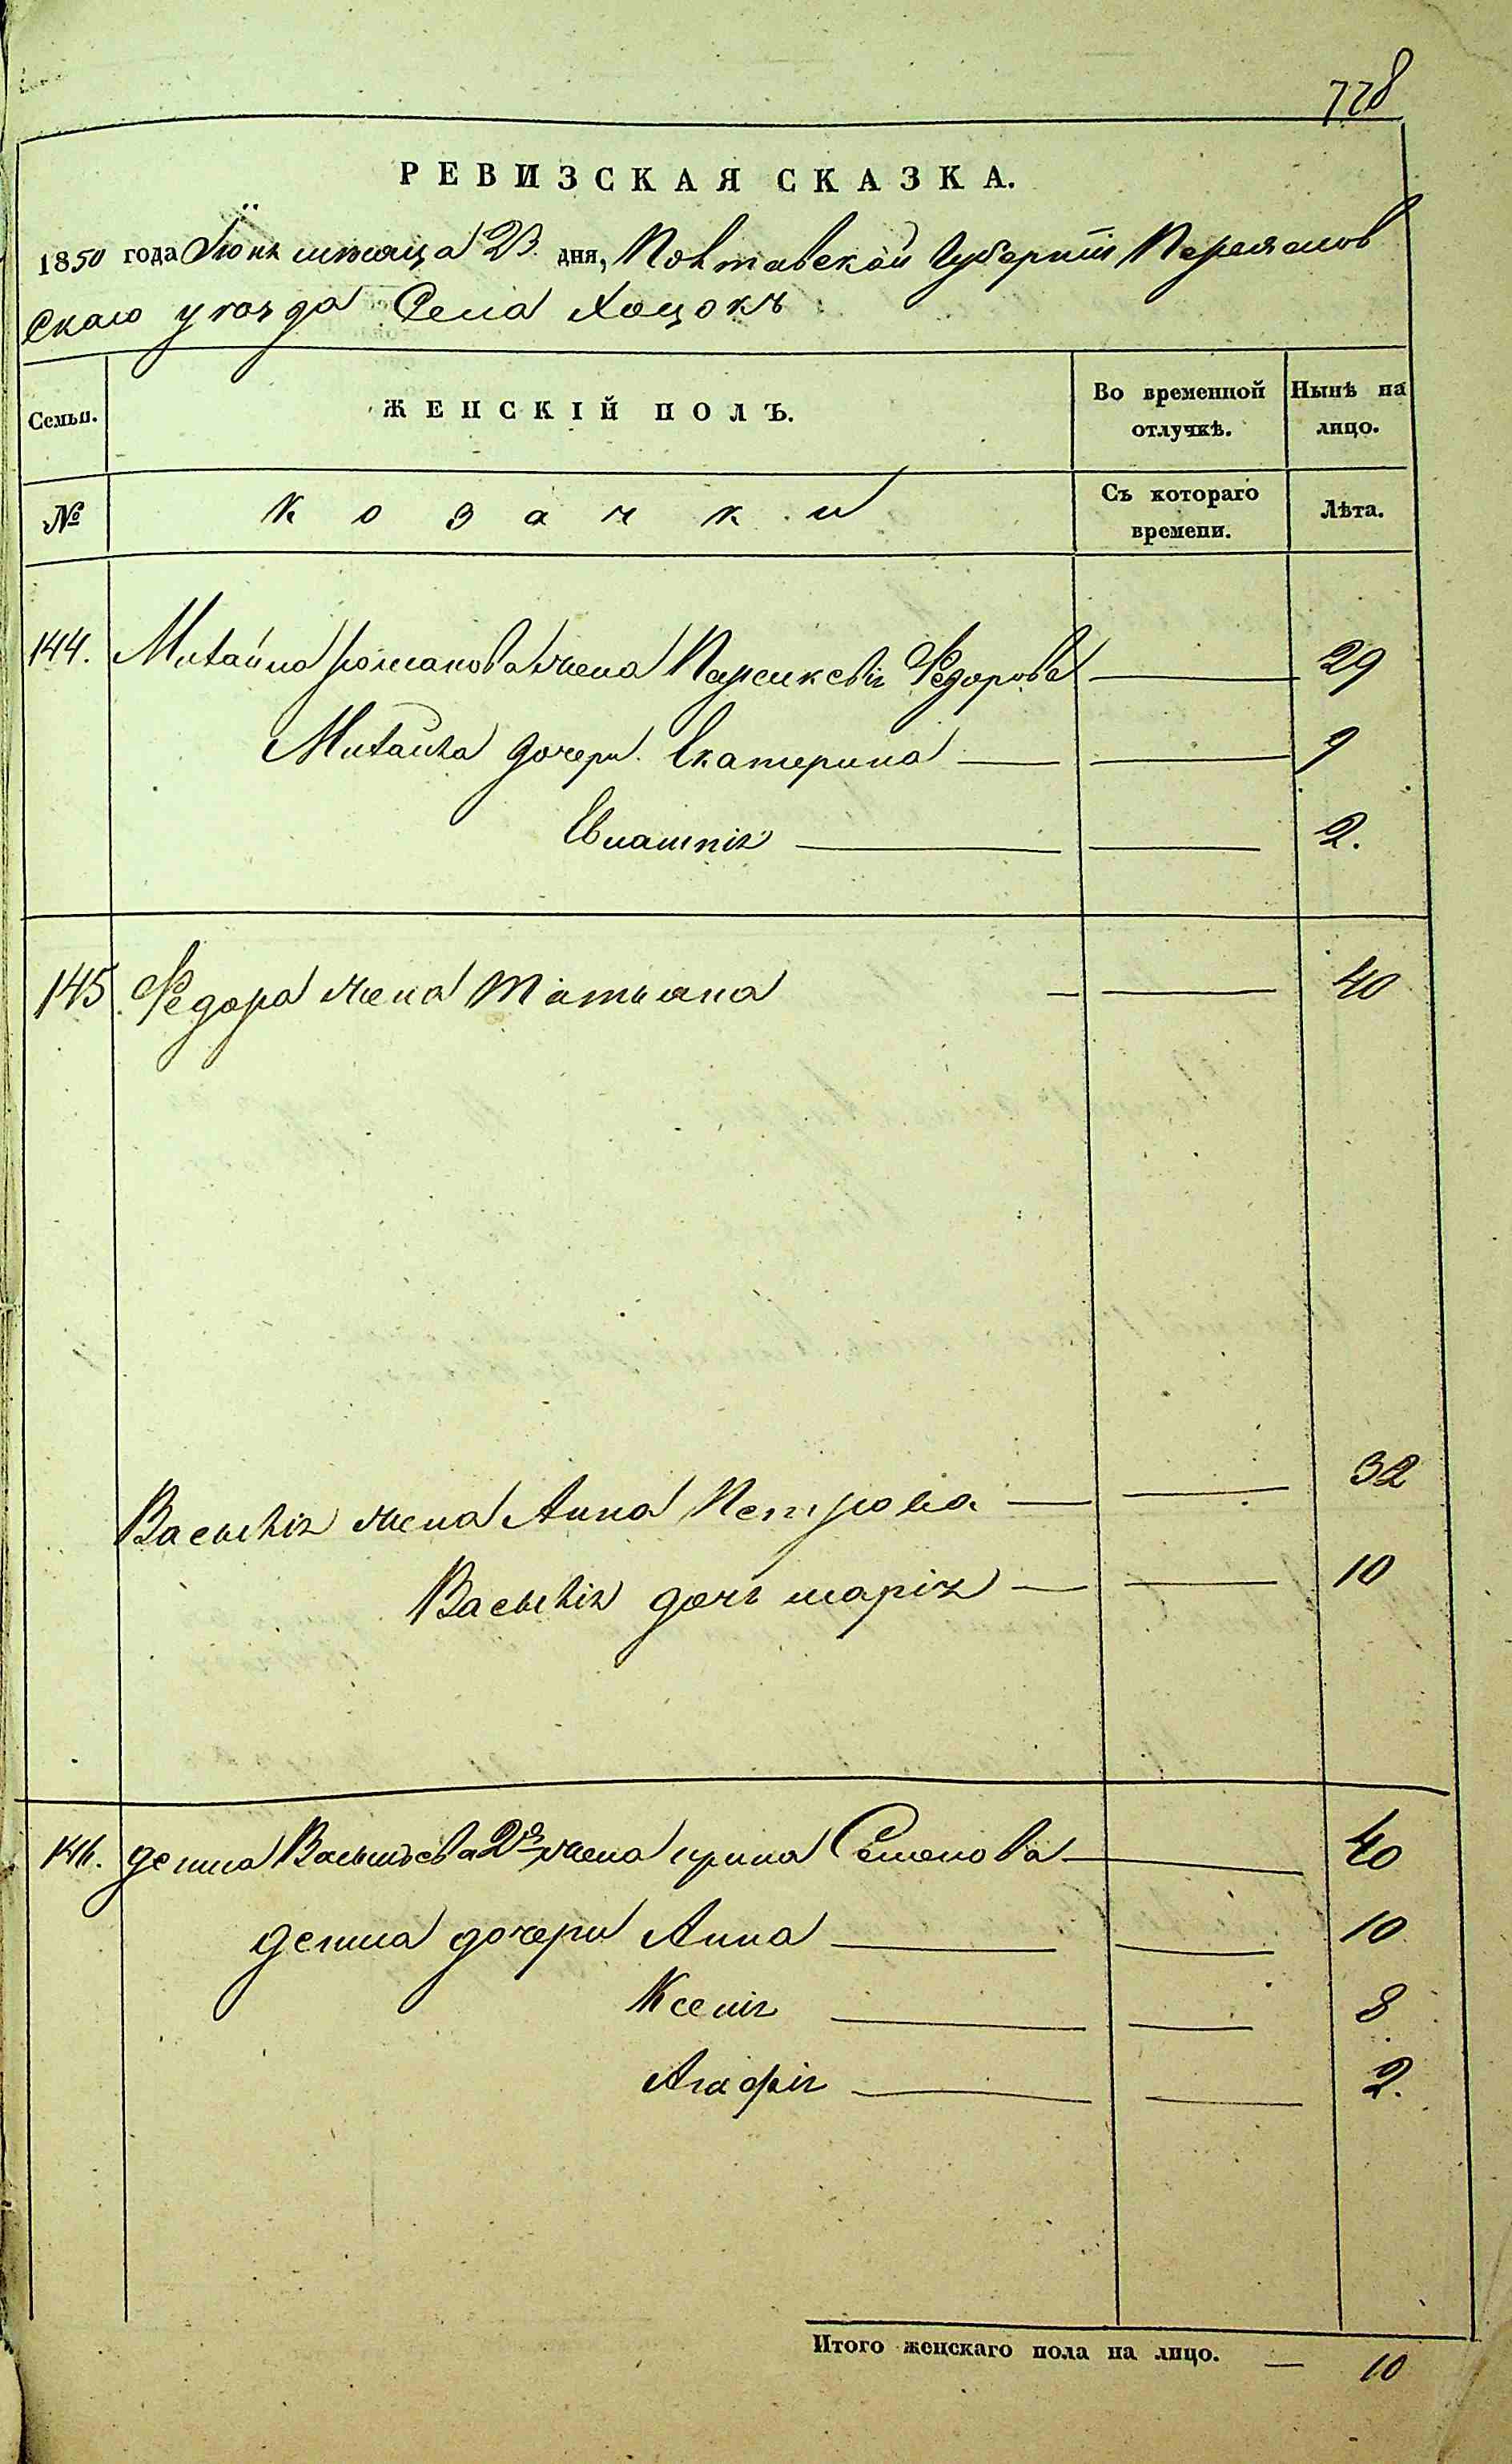 778
РЕВИЗСКАЯ СКАЗКА.
1850 года Іюня мѣсяца 23 дня, Полтавской Губерніи Переяслов
скаго уѣзда Села Хоцокъ
Семьи. ЖЕНСКІЙ ПОЛЪ. Во временной отлучкѣ. Нынѣ на лицо.
№ Козачки Съ котораго времени. Лѣта.
144. Михайла Романова жена Федорова 29
Михайла дочери Екатерина 9
2.
145. Федора жена Татьяна 40
Василія жена Анна Петрова 32
Василія дочь Марія 10
146. Демида Васильева 2я жена Ирина Семенова 40
дочери Анна 10
Ксенія 8
Агафія 2.
Итого женскаго пола на лицо. — 10